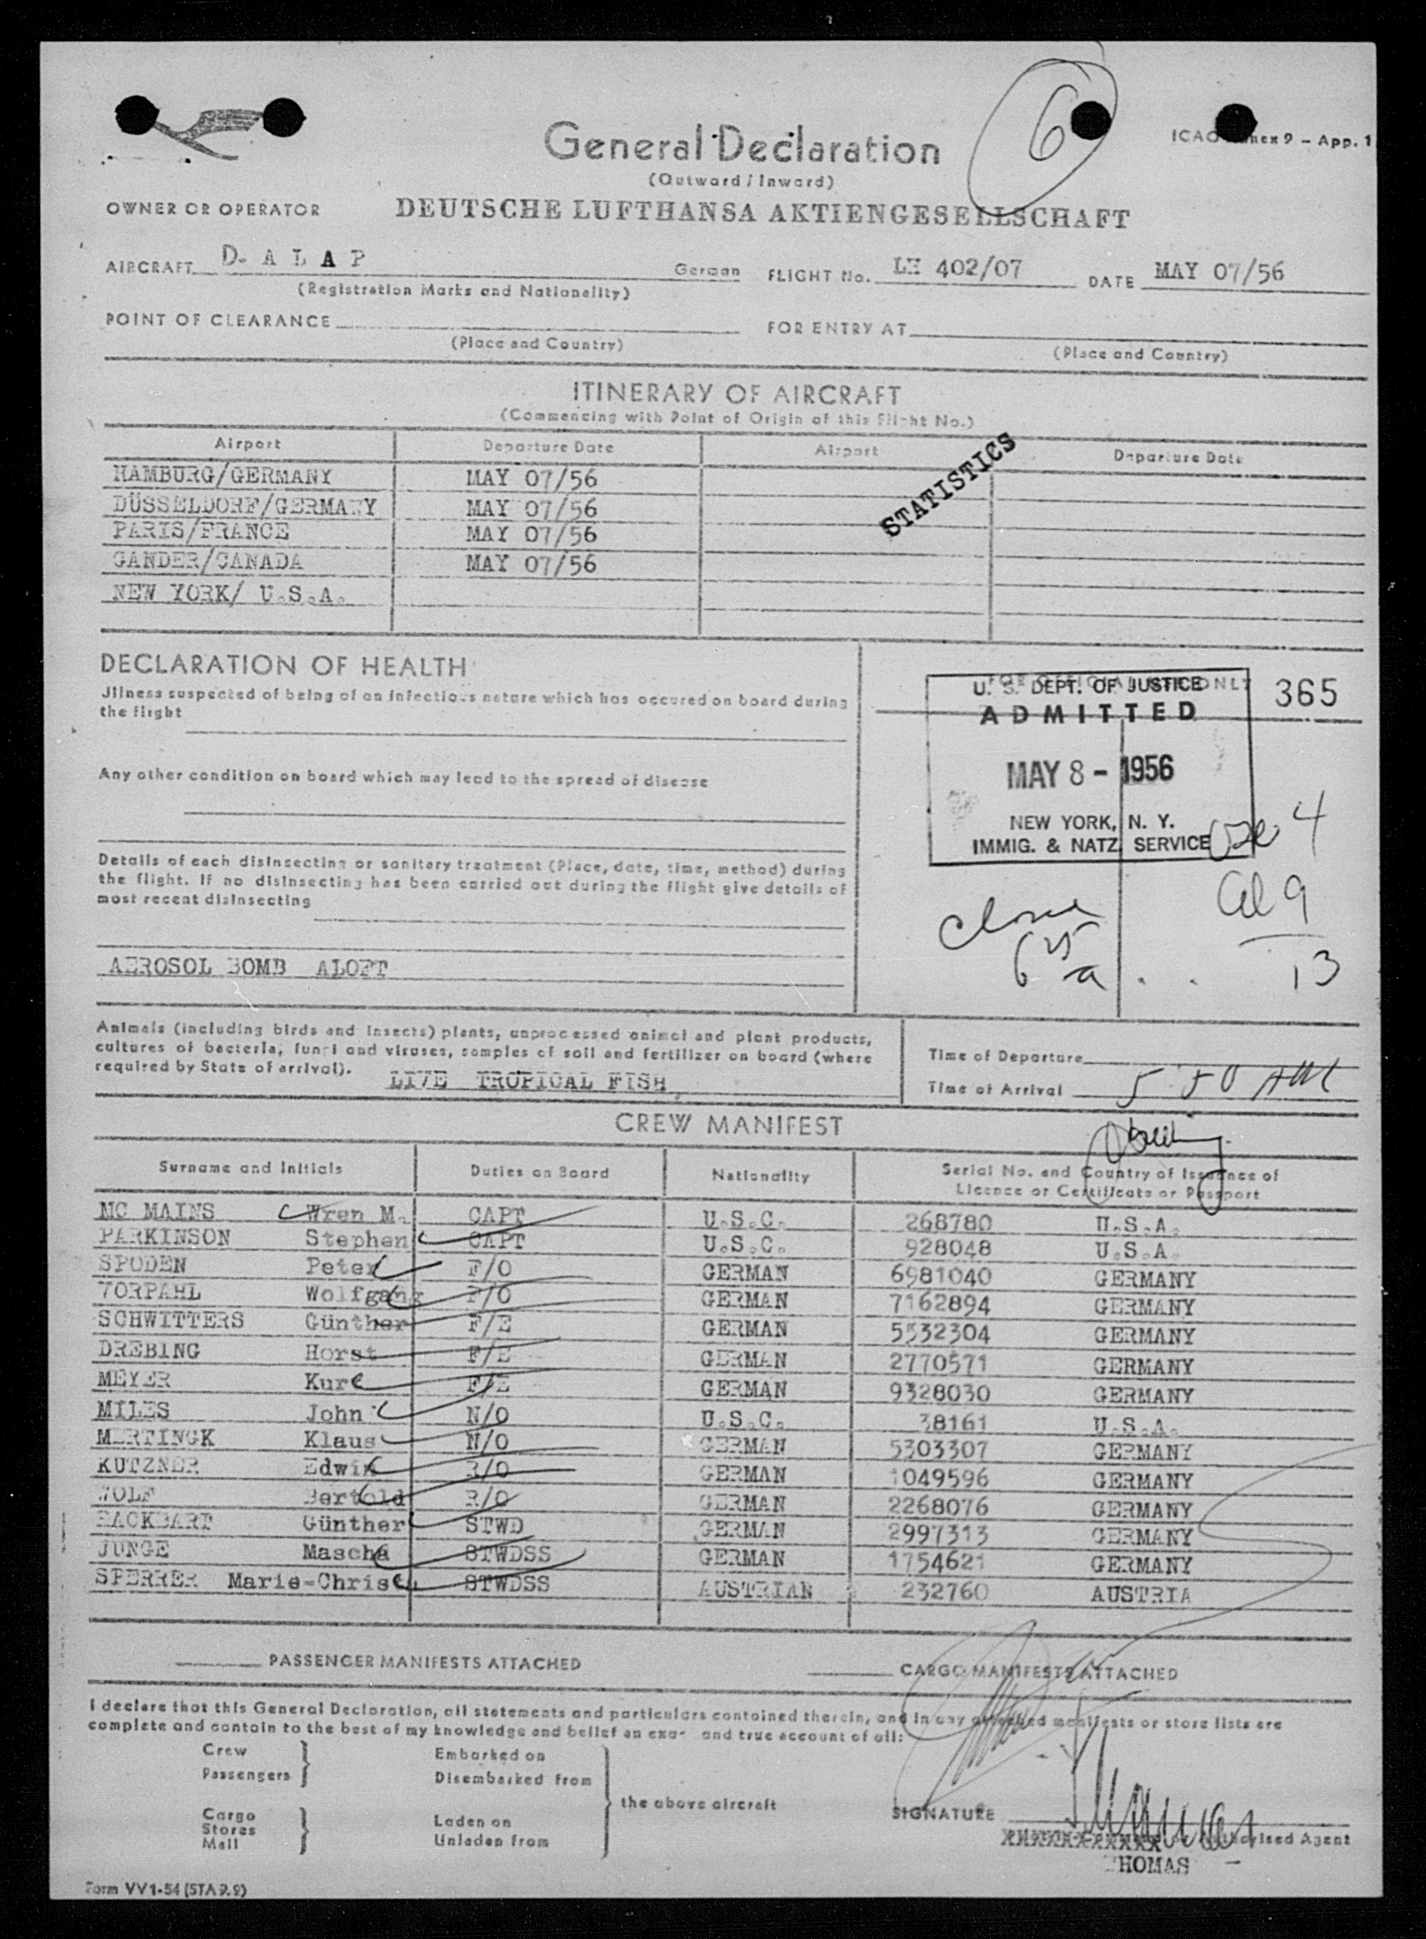 6
General Declaration
ICAO Annex 9 – App. 1
(Outward / Inward)
OWNER OR OPERATOR DEUTSCHE LUFTHANSA AKTIENGESELLSCHAFT
AIRCRAFT D- A L A P German FLIGHT No. LH 402/07 DATE MAY 07/56
(Registration Marks and Nationality)
POINT OF CLEARANCE FOR ENTRY AT
(Place and Country) (Place and Country)
ITINERARY OF AIRCRAFT
(Commencing with Point of Origin of this Flight No.)
Airport Departure Date Airport Departure Date
HAMBURG/GERMANY MAY 07/56
DÜSSELDORF/GERMANY MAY 07/56
PARIS/FRANCE MAY 07/56
GANDER/CANADA MAY 07/56
NEW YORK/ U.S.A.
STATISTICS
DECLARATION OF HEALTH
Jllness suspected of being of an infectious nature which has occured on board during
the flight
Any other condition on board which may lead to the spread of disease
Details of each disinsecting or sanitary treatment (Place, date, time, method) during
the flight. If no disinsecting has been carried out during the flight give details of
most recent disinsecting
AEROSOL BOMB ALOFT
FOR OFFICIAL USE ONLY
U. S. DEPT. OF JUSTICE
ADMITTED
MAY 8 - 1956
NEW YORK, N. Y.
IMMIG. & NATZ. SERVICE
365
4
9
13
Animals (including birds and insects) plants, unprocessed animal and plant products,
cultures of bacteria, fungi and viruses, samples of soil and fertilizer on board (where
required by State of arrival). LIVE TROPICAL FISH
Time of Departure
Time of Arrival 5 50 AM
CREW MANIFEST
Surname and Initials Duties on Board Nationality Serial No. and Country of Issuance of
Licence or Certificate or Passport
MC MAINS Wren M. CAPT U.S.C. 268780 U.S.A.
PARKINSON Stephen CAPT U.S.C. 928048 U.S.A.
SPODEN Peter F/O GERMAN 6981040 GERMANY
VORPAHL Wolfgang F/O GERMAN 7162894 GERMANY
SCHWITTERS Günther F/E GERMAN 5532304 GERMANY
DREBING Horst F/E GERMAN 2770571 GERMANY
MEYER Kurt F/E GERMAN 9328030 GERMANY
MILES John N/O U.S.C. 38161 U.S.A.
MERTINGK Klaus N/O GERMAN 5303307 GERMANY
KUTZNER Edwin R/O GERMAN 1049596 GERMANY
WOLF Bertold R/O GERMAN 2268076 GERMANY
HACKBART Günther STWD GERMAN 2997313 GERMANY
JUNGE Mascha STWDSS GERMAN 1754621 GERMANY
SPERRER Marie-Christ. STWDSS AUSTRIAN 232760 AUSTRIA
PASSENGER MANIFESTS ATTACHED CARGO MANIFESTS ATTACHED
I declare that this General Declaration, all statements and particulars contained therein, and in any attached manifests or store lists are
complete and contain to the best of my knowledge and belief an exact and true account of all:
Crew
Passengers
Embarked on
Disembarked from
Cargo
Stores
Mail
Laden on
Unladen from
the above aircraft
SIGNATURE
Authorised Agent
THOMAS
Form VV1-54 (STA 9.9)